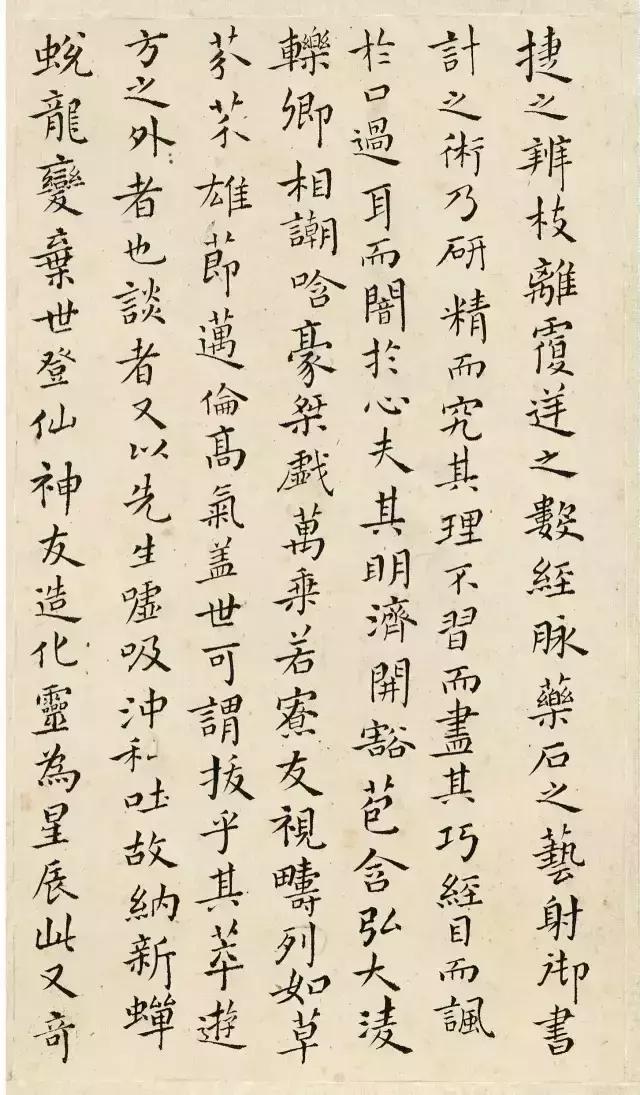 捷之辨枝離覆逆之數經脉藥石之藝射御書
計之術乃研精而究其理不習而盡其巧經目而諷
於口過耳而闇於心夫其明濟開豁苞含弘大淩
轢卿相謿唅豪桀戲萬乗若寮友視疇列如草
芬芥雄莭邁倫髙氣盖世可謂拔乎其萃遊
方之外者也談者又以先生嘘吸沖和吐故納新蟬
蛻龍變棄世登仙神友造化靈為星辰此又奇